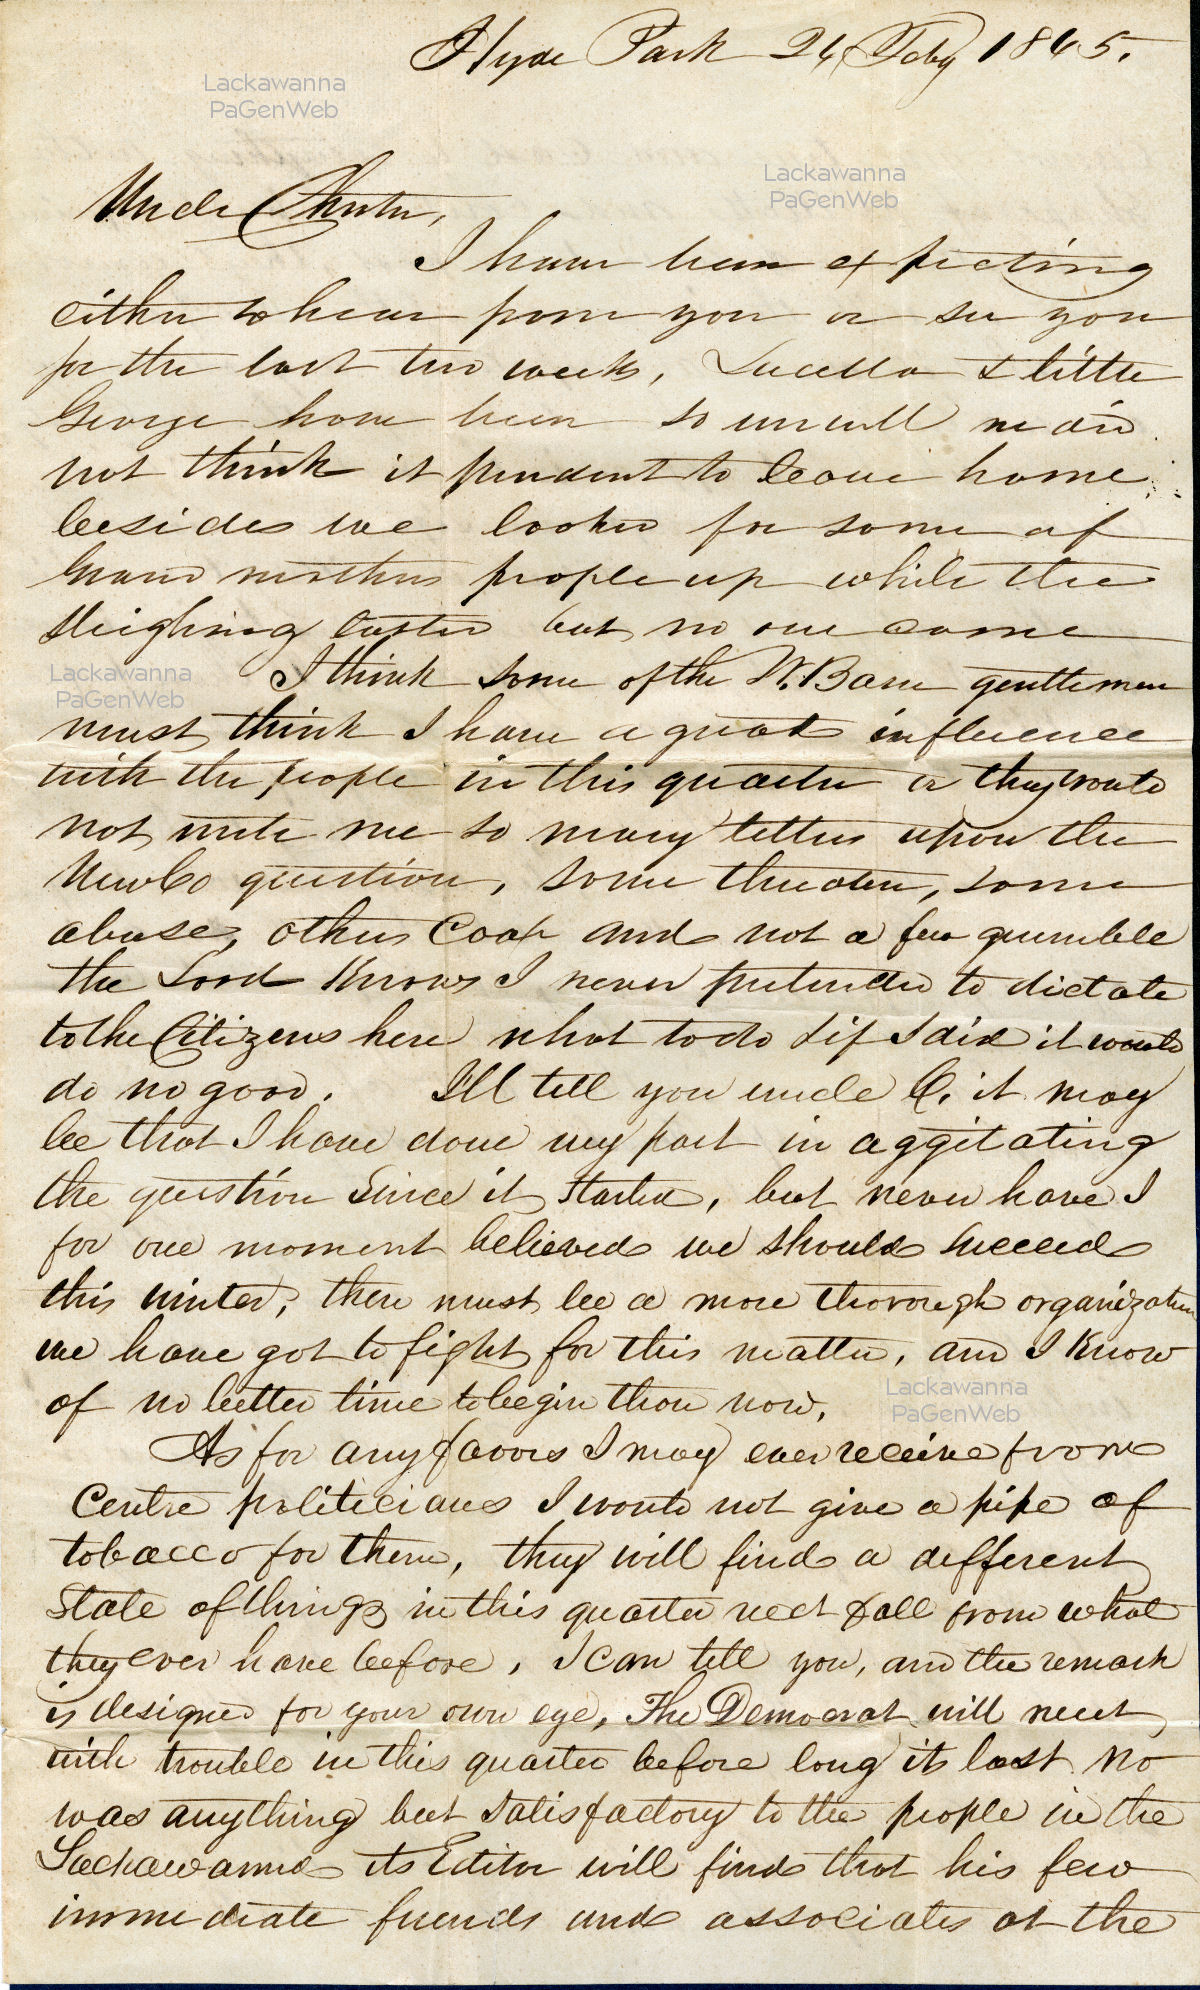 Hyde Park 24 Feby 1865.
Lackawanna
PaGenWeb
Lackawanna
PaGenWeb
Uncle
I have been expecting
either to hear from you or see you
for the last two weeks, Lucella & little
George have been so unwell we did
not think it prudent to leave home
besides we looked for some of
Grand mothers people up while the
sleighing lasted but no one came
Lackawanna
PaGenWeb
I think some of the W. Barre gentlemen
must think I have a great influence
with the people in this quarter or they would
not write me so many letters upon the
New Co question, some threaten, some
abuse, others Coax and not a few grumble
the Lord Knows I never pretended to dictate
to the Citizens here what to do & if I did it would
do no good. I'll tell you uncle C. it may
be that I have done my part in aggitating
the question since it started, but never have I
for one moment believed we should succeed
this winter, there must be a more thorough organization
we have got to fight for this matter, and I Know
of no better time to begin than now.
Lackawanna
PaGenWeb
As for any favors I may ever receive from
Centre politicians I would not give a pipe of
tobacco for them, they will find a different
state of things in this quarter next fall from what
they ever have before. I can tell you, and the remark
is designed for your own eye, The Democrat will meet
with trouble in this quarter before long its last No
was anything but satisfactory to the people in the
Lackawanna its Editor will find that his few
immediate friends and associates at the